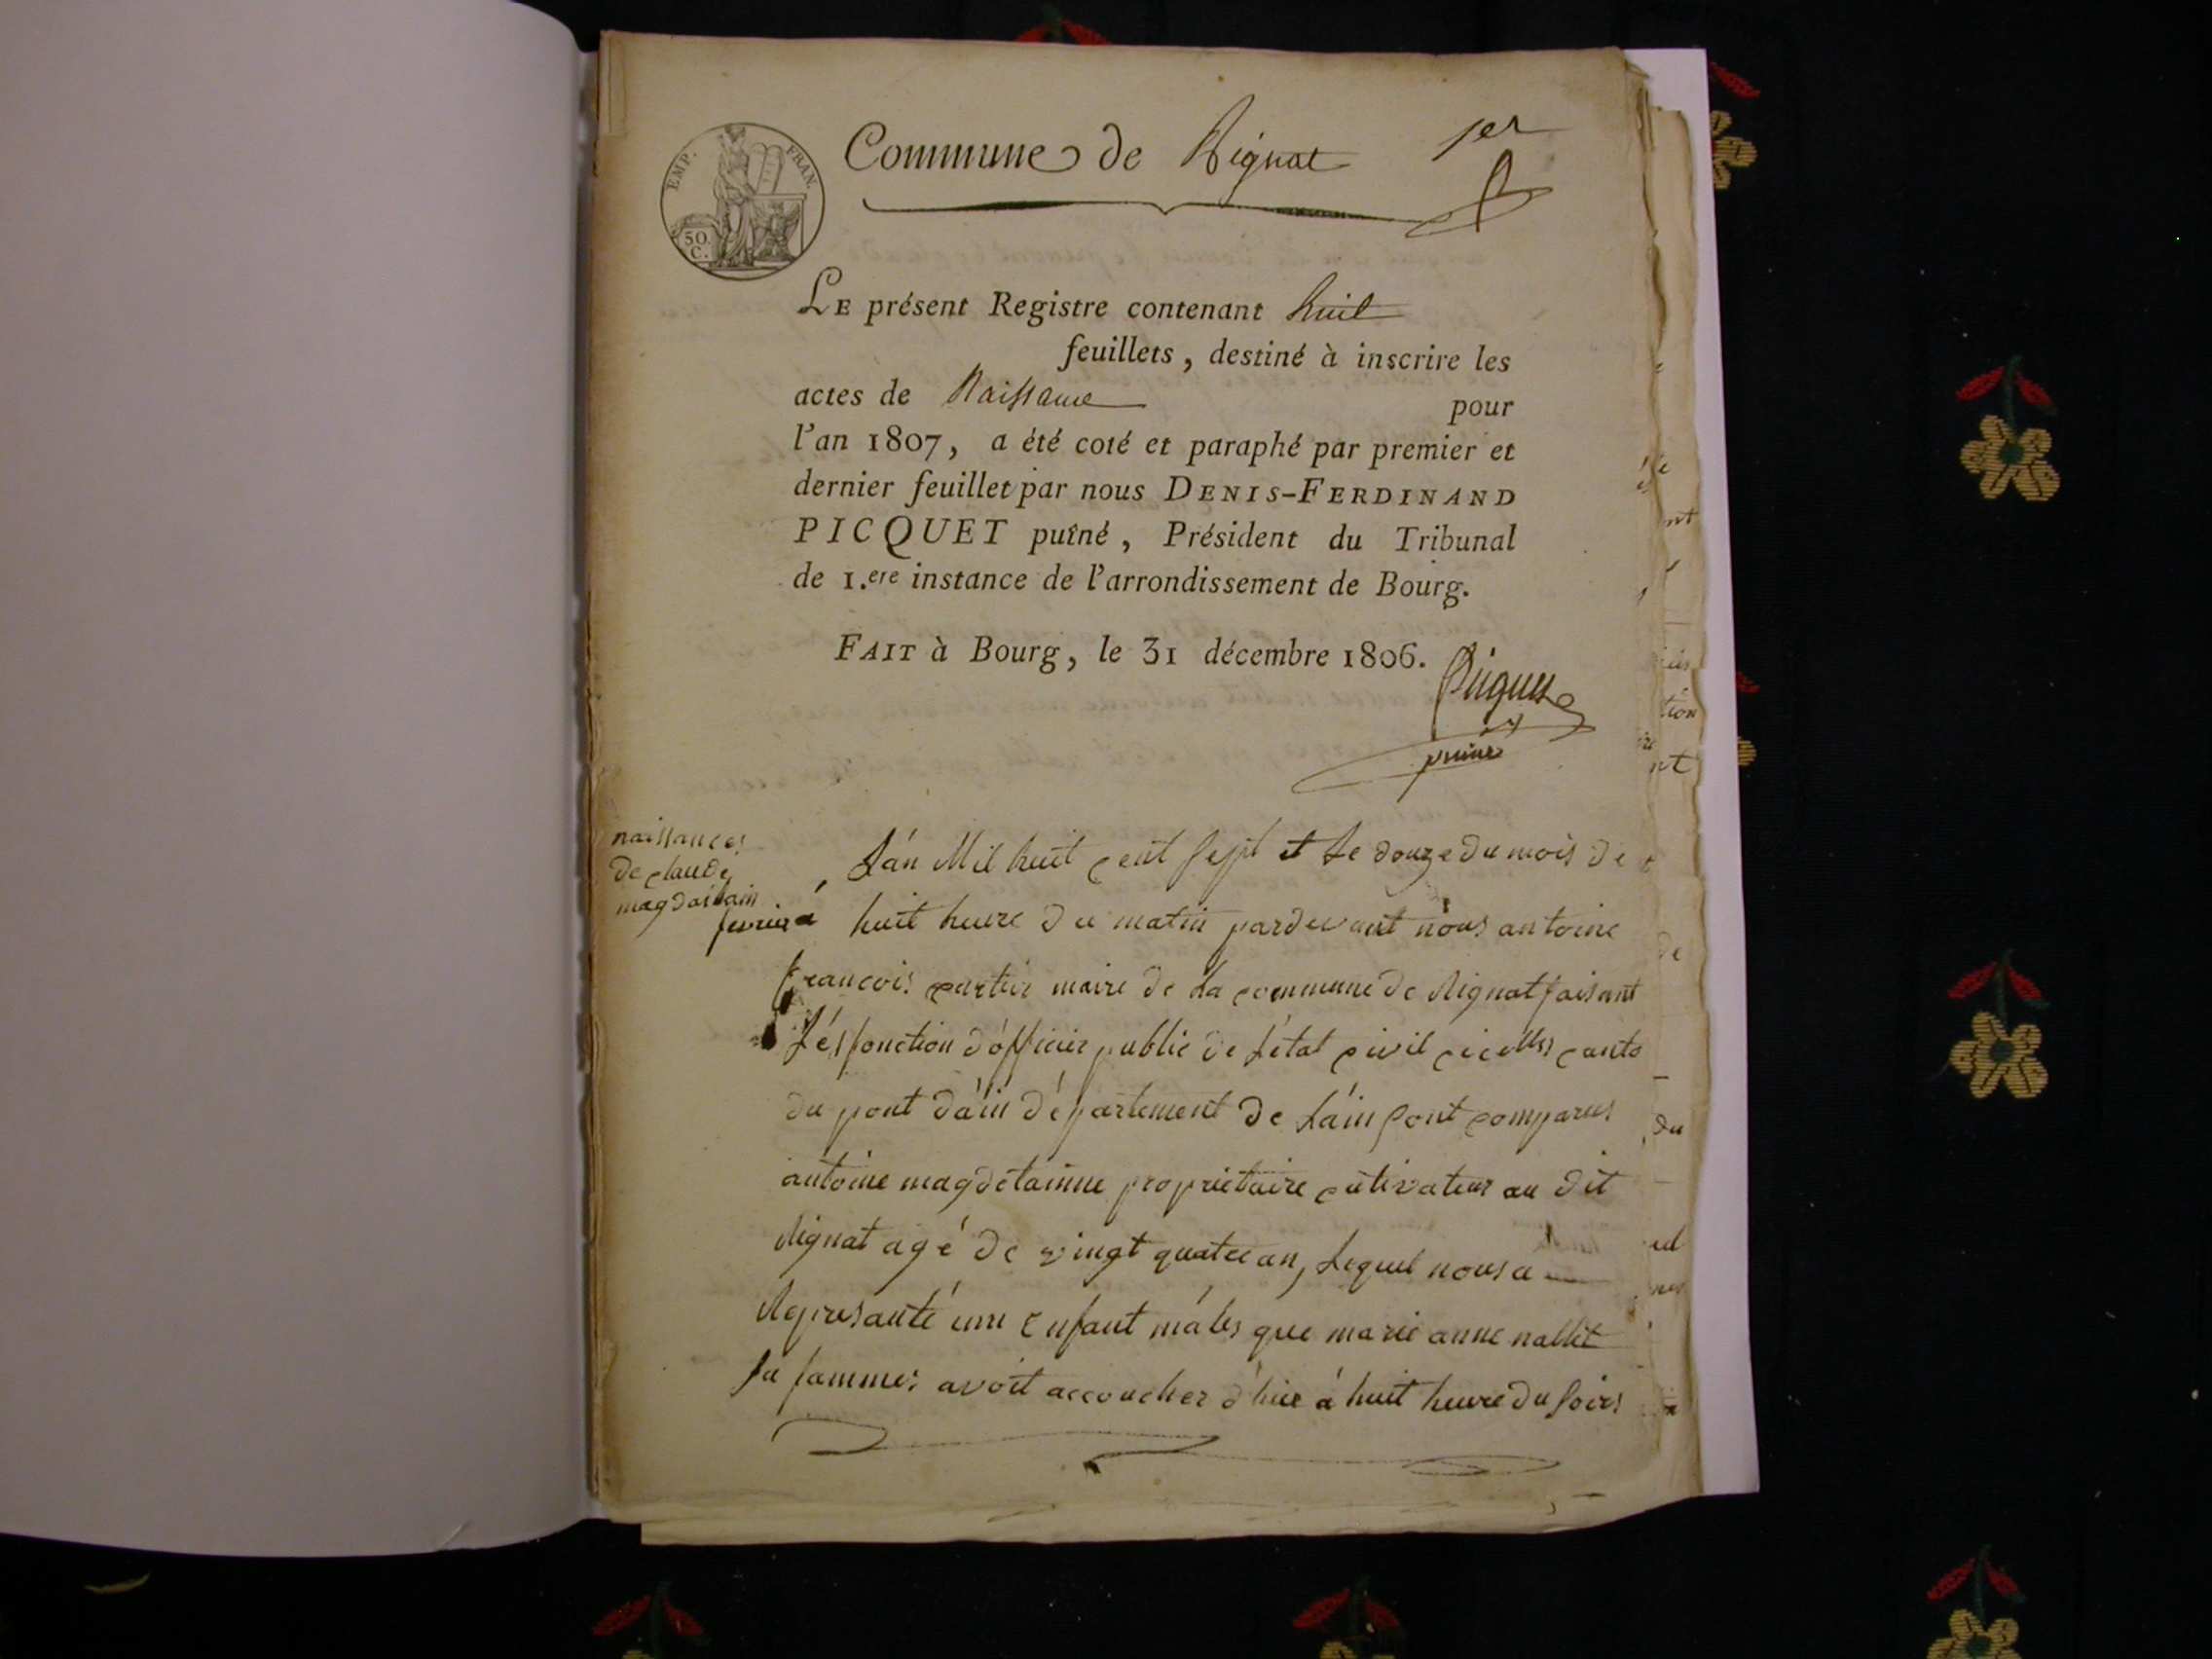 EMP. FRAN.
50. C.
Commune de Rignat 1er
LE présent Registre contenant huit
feuillets, destiné à inscrire les
actes de Naissance pour
l'an 1807, a été coté et paraphé par premier et
dernier feuillet par nous DENIS-FERDINAND
PICQUET puîné, Président du Tribunal
de 1.ere instance de l'arrondissement de Bourg.
FAIT à Bourg, le 31 décembre 1806.
Picquet
puiné
naissances
de claude
L'an Mil huit cent sept et Le douze du mois de
fevrier à huit heure du matin pardevant nous antoine
francois maire de La commune de Rignat faisant
Lés fonction d'officier public de L'état civil canto
du pont d'ain département de L'ain sont comparus
antoine magdetainne proprietaire cutivateur au dit
Rignat agé de vingt quatre an, Lequel nous a
Represanté un Enfant mâles que marie anne nallet
sa fammes avoit accoucher d'hier à huit heure du soirs